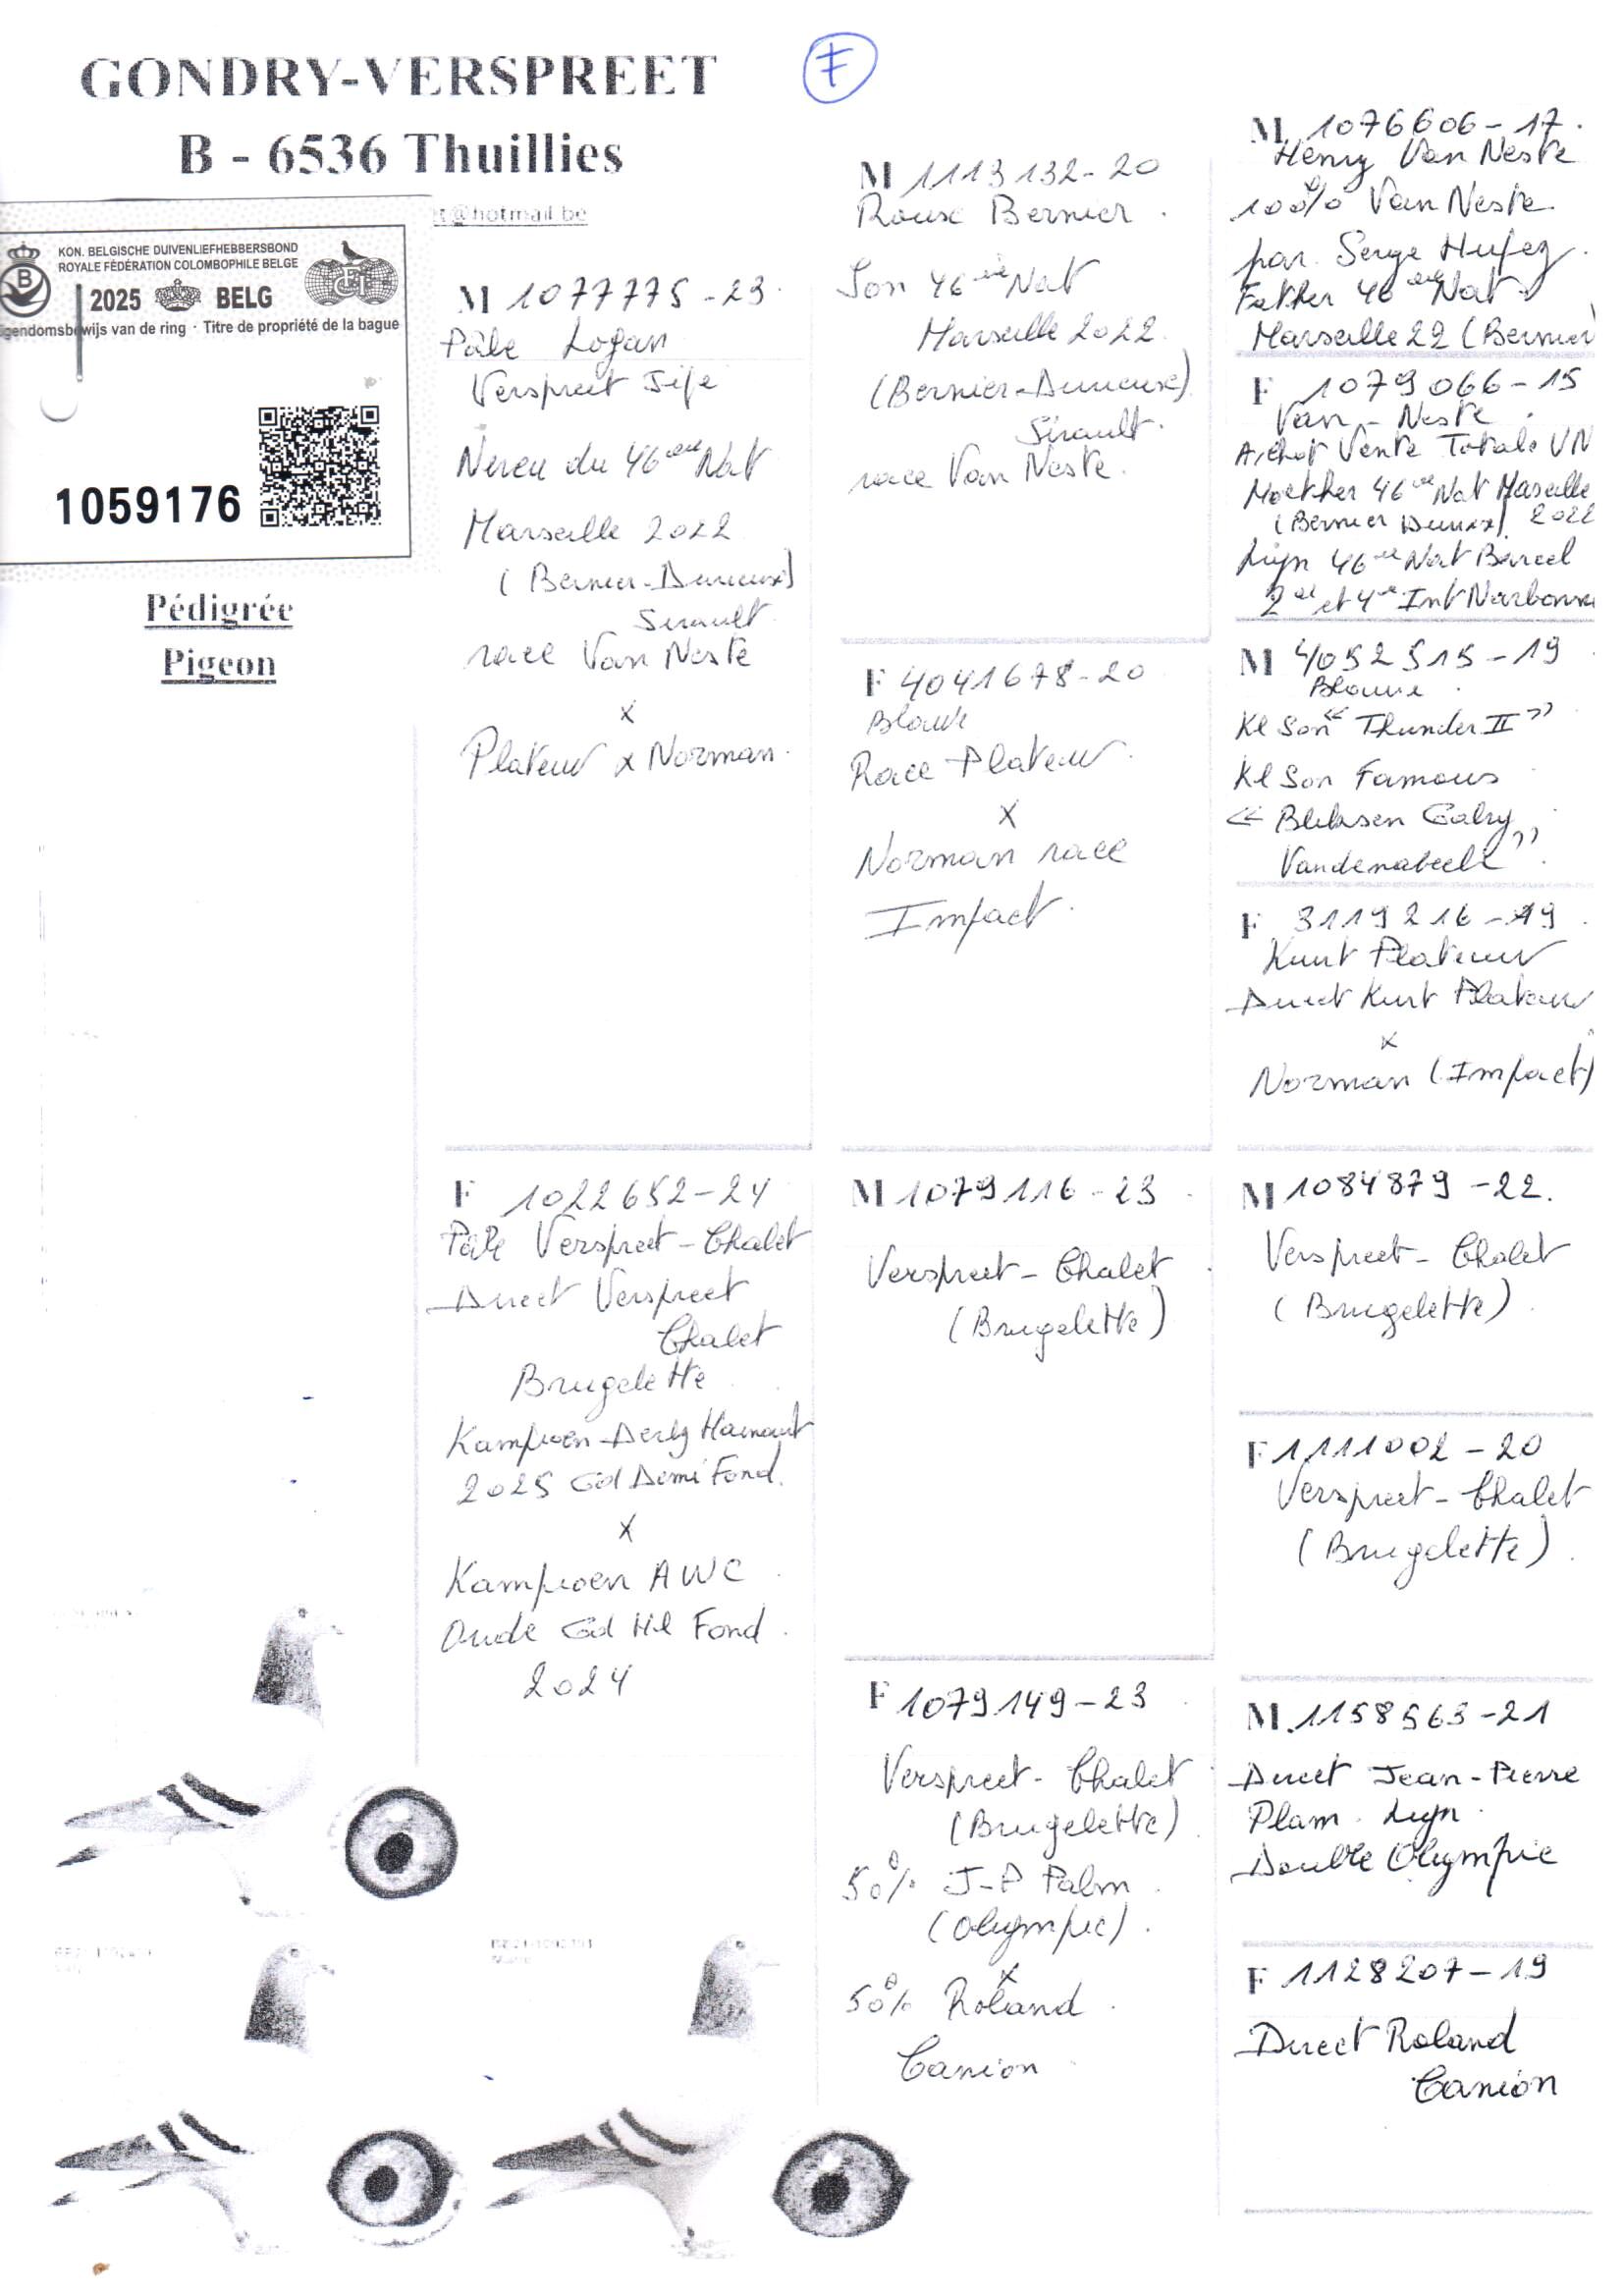 GONDRY-VERSPREET
B - 6536 Thuillies
t@hotmail.be
F
KON. BELGISCHE DUIVENLIEFHEBBERSBOND
ROYALE FÉDÉRATION COLOMBOPHILE BELGE
2025 BELG
igendomsbewijs van de ring · Titre de propriété de la bague
1059176
Pédigrée
Pigeon
M 1077775-23
Pâle Logan
Verspreet Jife
Neveu du 46ème Nat
Marseille 2022
(Bernier-Durieux)
Sirault
race Van Neste
x
Plateuw x Norman
F 1022652-24
Pâle Verspreet-Chalet
Direct Verspreet
Chalet
Brugelette
Kampioen Derby Hainaut
2025 Gd Demi Fond
x
Kampioen AWC
Oude Gd Hil Fond
2024
M 1113132-20
Rouse Bernier
Son 46ème Nat
Marseille 2022
(Bernier-Durieux)
Sirault
race Van Neste
F 4041678-20
Blauw
Race Plateuw
x
Norman race
Impact
M 1079116-23
Verspreet-Chalet
(Brugelette)
F 1079149-23
Verspreet-Chalet
(Brugelette)
50% J-P Palm
(Olympic)
x
50% Roland
Canion
M 1076606-17
Henry Van Neste
100% Van Neste
par Serge Hufez
Father 46ème Nat
Marseille 22 (Bernier
F 1079066-15
Van-Neste
Achat Vente Totale VN
Moether 46ème Nat Marseille
(Bernier Durieux) 2022
Lijn 46ème Nat Barcel
2de et 4de Int Narbonne
M 4052515-19
Blauwe
Kl Son "Thunder II"
Kl Son Famous
"Bliksem Gaby
Vandenabeele"
F 3119216-19
Kurt Plateuw
Direct Kurt Plateuw
x
Norman (Impact)
M 1084879-22
Verspreet-Chalet
(Brugelette)
F 1111002-20
Verspreet-Chalet
(Brugelette)
M 1158563-21
Direct Jean-Pierre
Plam Lijn
Double Olympic
F 1128207-19
Direct Roland
Canion